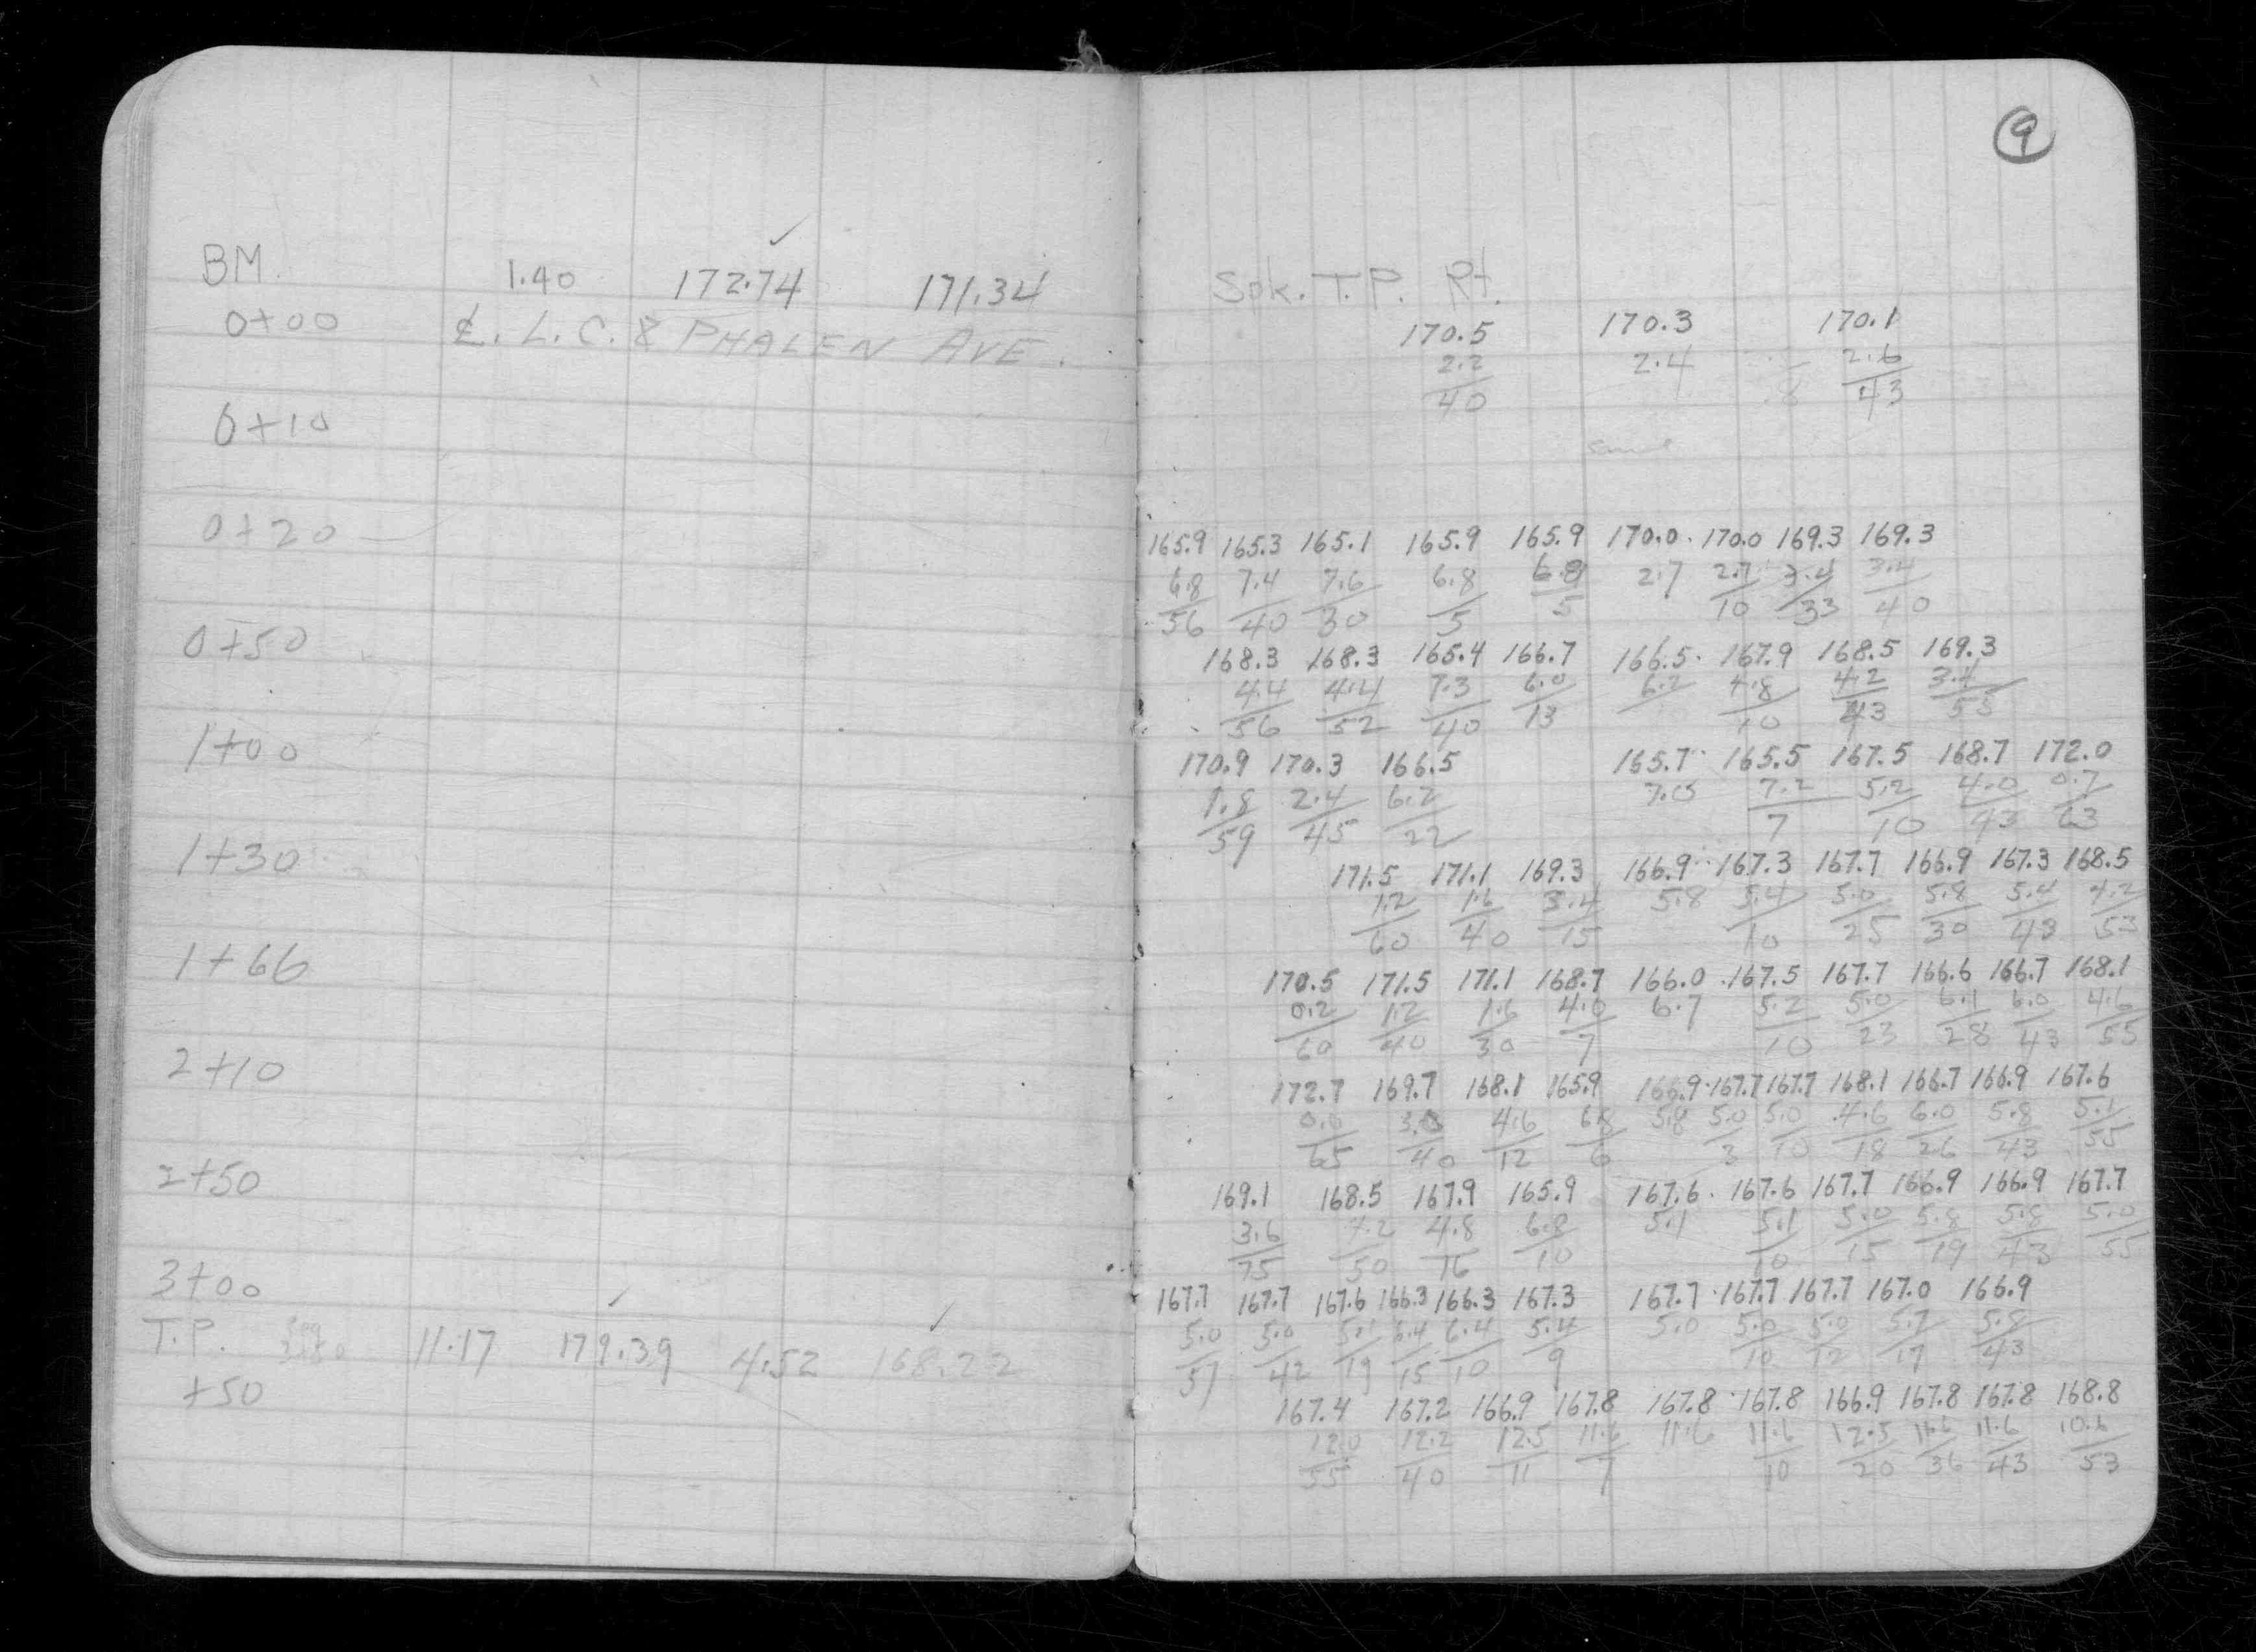 9
BM. 1.40 172.74 171.34
0+00 ℄. L. C. & PHALEN AVE.
0+10
0+20
0+50
1+00
1+30
1+66
2+10
2+50
3+00
T.P. 11.17 179.39 4.52 168.22
+50
Spk. T.P. Rt.
170.5 170.3 170.1
2.2 2.4 2.6
40 43
same
165.9 165.3 165.1 165.9 165.9 170.0 170.0 169.3 169.3
6.8 7.4 7.6 6.8 6.8 2.7 2.7 3.4 3.4
56 40 30 5 5 10 33 40
168.3 168.3 165.4 166.7 166.5 167.9 168.5 169.3
4.4 4.4 7.3 6.0 6.2 4.8 4.2 3.4
56 52 40 13 10 43 55
170.9 170.3 166.5 165.7 165.5 167.5 168.7 172.0
1.8 2.4 6.2 7.0 7.2 5.2 4.0 0.7
59 45 22 7 10 43 63
171.5 171.1 169.3 166.9 167.3 167.7 166.9 167.3 168.5
1.2 1.6 3.4 5.8 5.4 5.0 5.8 5.4 4.2
60 40 15 10 25 30 43 53
170.5 171.5 171.1 168.7 166.0 167.5 167.7 166.6 166.7 168.1
0.2 1.2 1.6 4.0 6.7 5.2 5.0 6.1 6.0 4.6
60 40 30 7 10 23 28 43 55
172.7 169.7 168.1 165.9 166.9 167.7 167.7 168.1 166.7 166.9 167.6
0.0 3.0 4.6 6.8 5.8 5.0 5.0 4.6 6.0 5.8 5.1
65 40 12 6 3 10 18 26 43 55
169.1 168.5 167.9 165.9 167.6 167.6 167.7 166.9 166.9 167.7
3.6 7.2 4.8 6.8 5.1 5.1 5.0 5.8 5.8 5.0
75 50 16 10 10 15 19 43 55
167.7 167.7 167.6 166.3 166.3 167.3 167.7 167.7 167.7 167.0 166.9
5.0 5.0 5.1 6.4 6.4 5.4 5.0 5.0 5.0 5.7 5.8
57 42 19 15 10 9 10 12 17 43
167.4 167.2 166.9 167.8 167.8 167.8 166.9 167.8 167.8 168.8
12.0 12.2 12.5 11.6 11.6 11.6 12.5 11.6 11.6 10.6
55 40 11 7 10 20 36 43 53